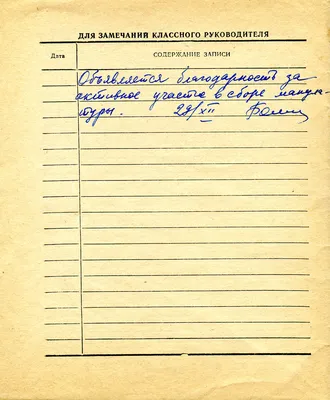 ДЛЯ ЗАМЕЧАНИЙ КЛАССНОГО РУКОВОДИТЕЛЯ
Дата СОДЕРЖАНИЕ ЗАПИСИ
Объявляется благодарность за
активное участие в сборе макула-
туры. 29/XII